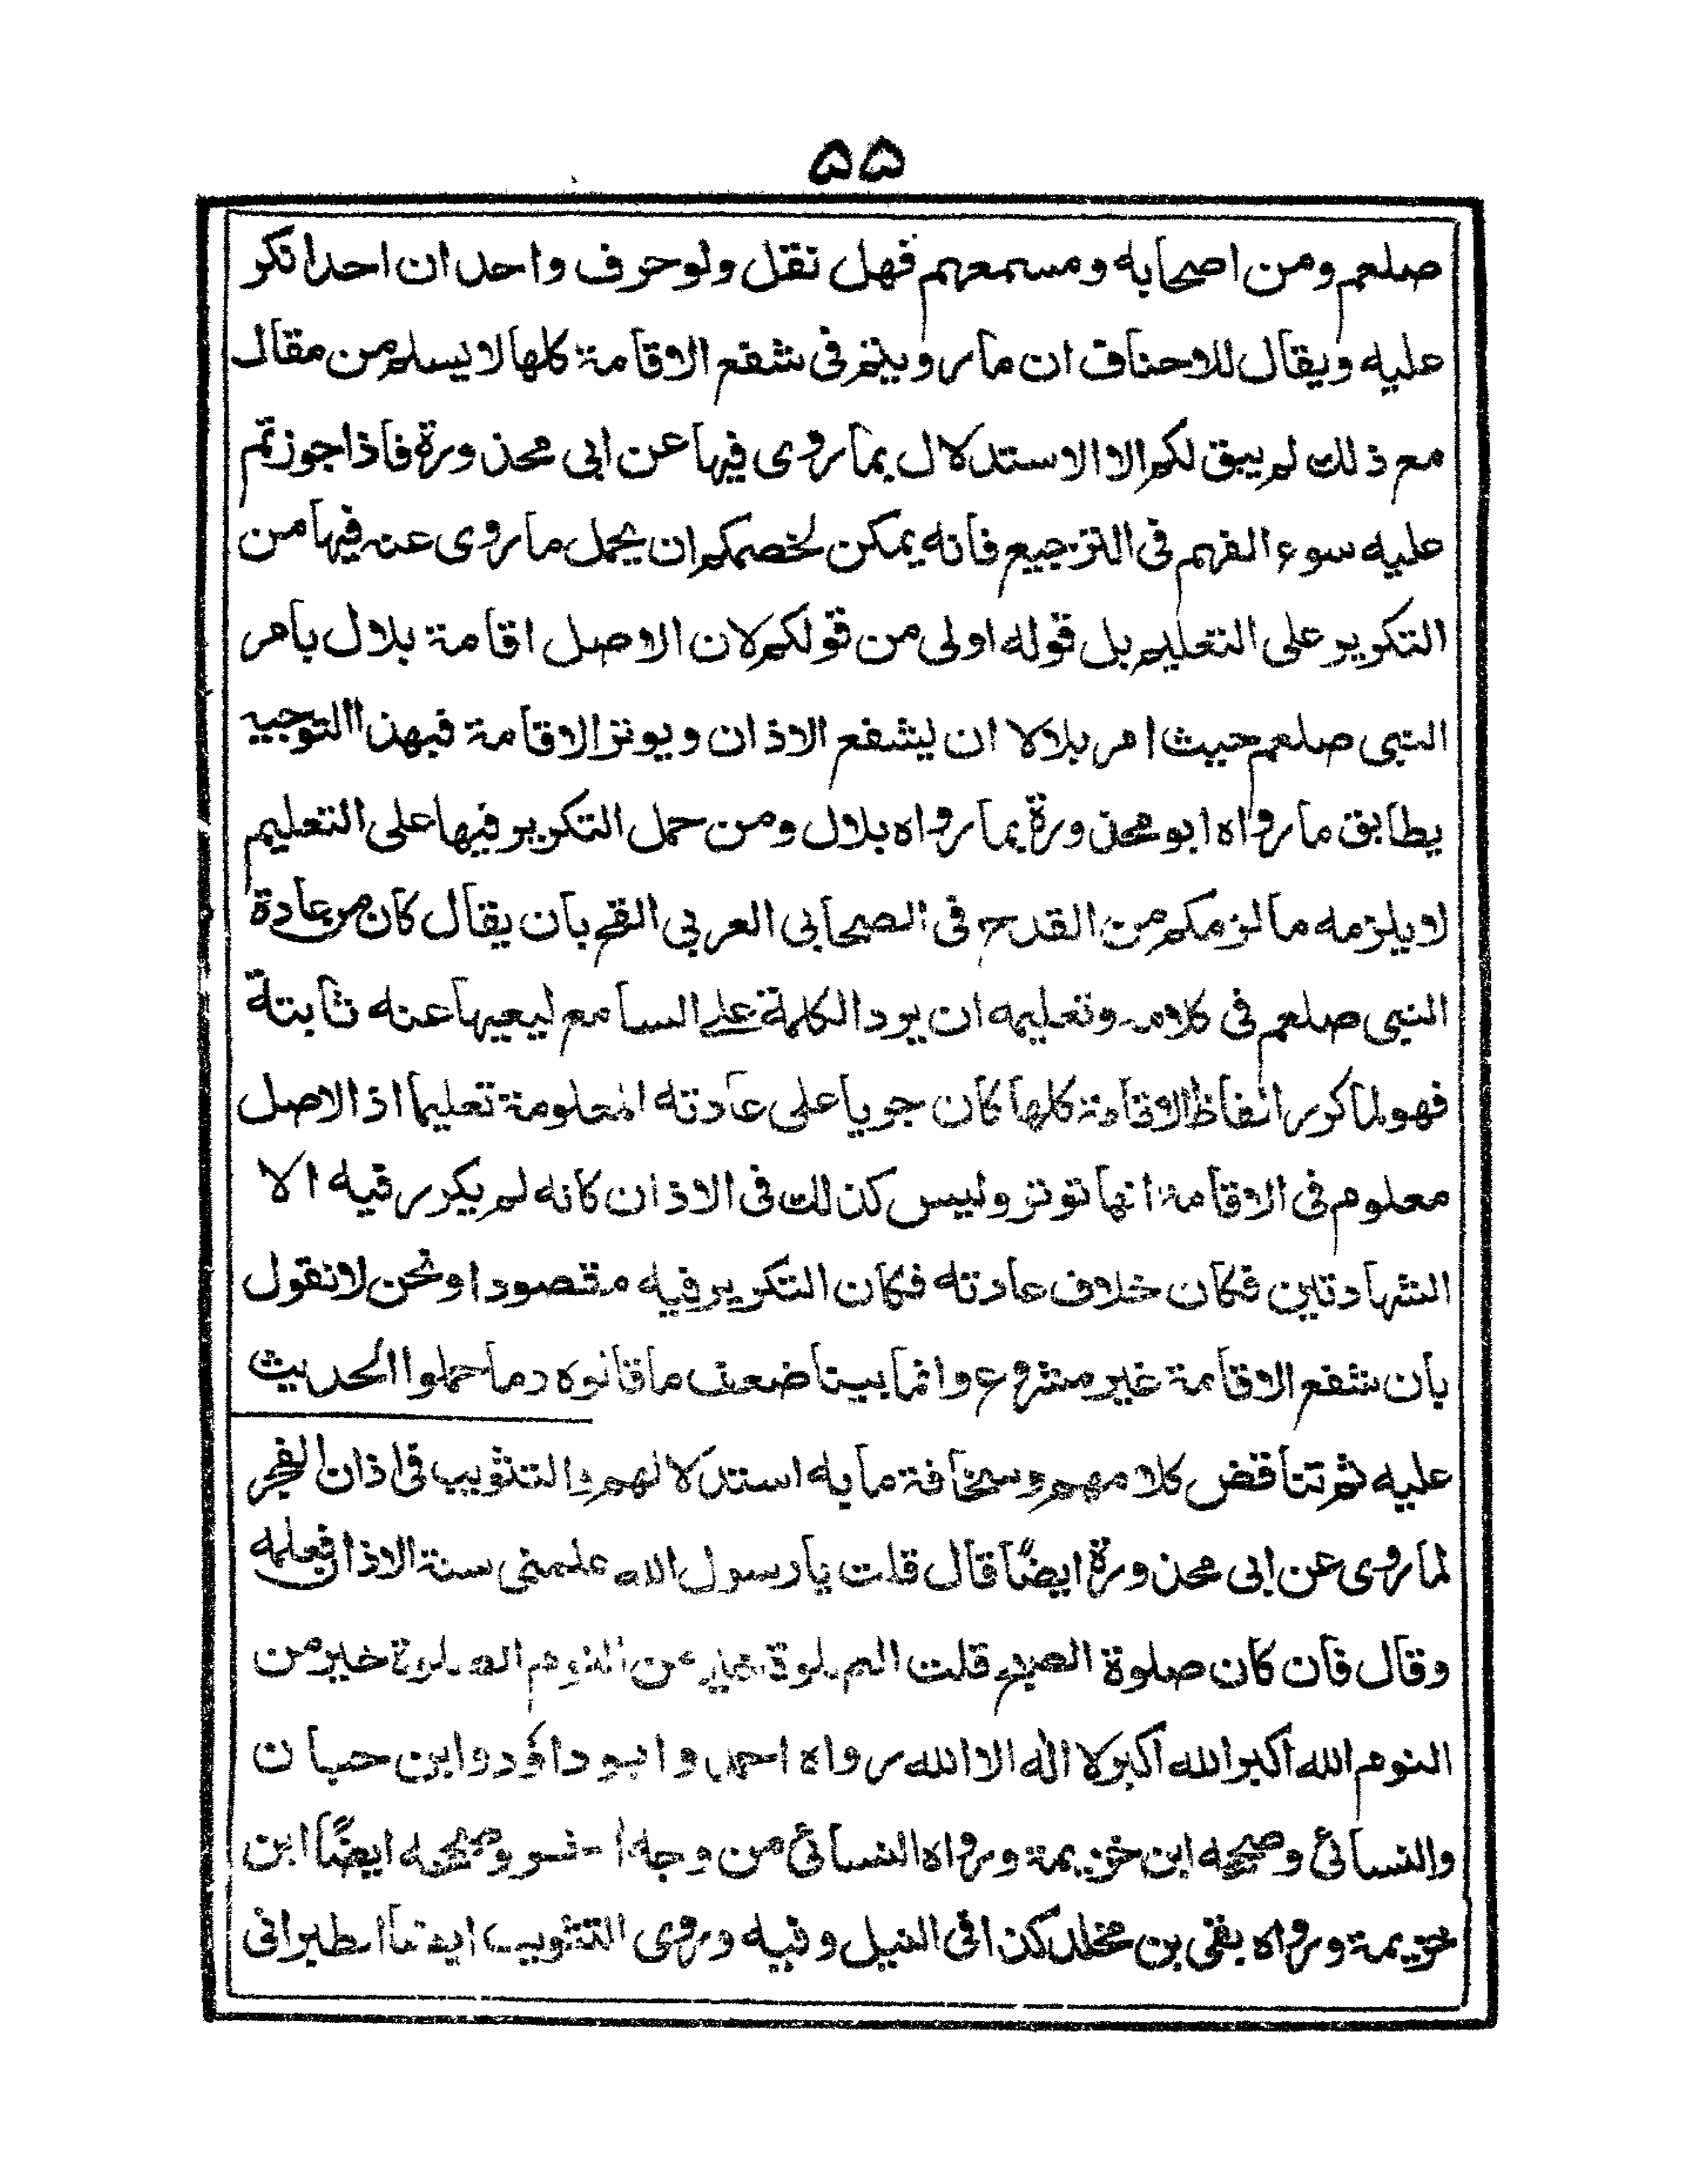 ۵۵
صلعم ومن اصحابه ومسمعهم فهل نقل ولوحرف واحد ان احدا نكر
عليه ويقال للاحناف ان ما رويتم فى شفع الاقامة كلها لا يسلم من مقال
مع ذلك لم يبق لكم الا الاستدلال بما روى فيها عن ابى محذورة فاذا جوزتم
عليه سوء الفهم فى الترجيع فانه يمكن لخصمكم ان يحمل ما روى عنه فيها من
التكرير على التعليم بل قوله اولى من قولكم لان الاصل اقامة بلال بامر
النبى صلعم حيث امر بلالا ان يشفع الاذان ويوتر الاقامة فبهذا التوجيه
يطابق ما رواه ابو محذورة بما رواه بلال ومن حمل التكرير فيها على التعليم
لا يلزمه ما لزمكم من القدح فى الصحابى العربى القح بان يقال كان من عادة
النبى صلعم فى كلامه وتعليمه ان يرد الكلمة على السامع ليعيها عنه ثابتة
فهو لما كرر الفاظ الاقامة كلها كان جريا على عادته المعلومة تعليما اذ الاصل
معلوم فى الاقامة انها توتر وليس كذلك فى الاذان كانه لم يكرر فيه الا
الشهادتين فكان خلاف عادته فكان التكرير فيه مقصودا ونحن لا نقول
بان شفع الاقامة غير مشروع وانما بينا ضعف ما قالوه وما حملوا الحديث
عليه ثم تناقض كلامهم وسخافة ما به استدلالهم والتثويب فى اذان الفجر
لما روى عن ابى محذورة ايضًا قال قلت يا رسول الله علمنى سنة الاذان فعلمه
وقال فان كان صلوة الصبح قلت الصلوة خير من النوم الصلوة خير من
النوم الله اكبر الله اكبر لا اله الا الله رواه احمد وابو داؤد وابن حبان
والنسائى وصححه ابن خزيمة ورواه النسائى من وجه اخر وصححه ايضًا ابن
خزيمة ورواه بقى بن مخلد كذا فى النيل وفيه وروى التثويب ايضا الطبرانى